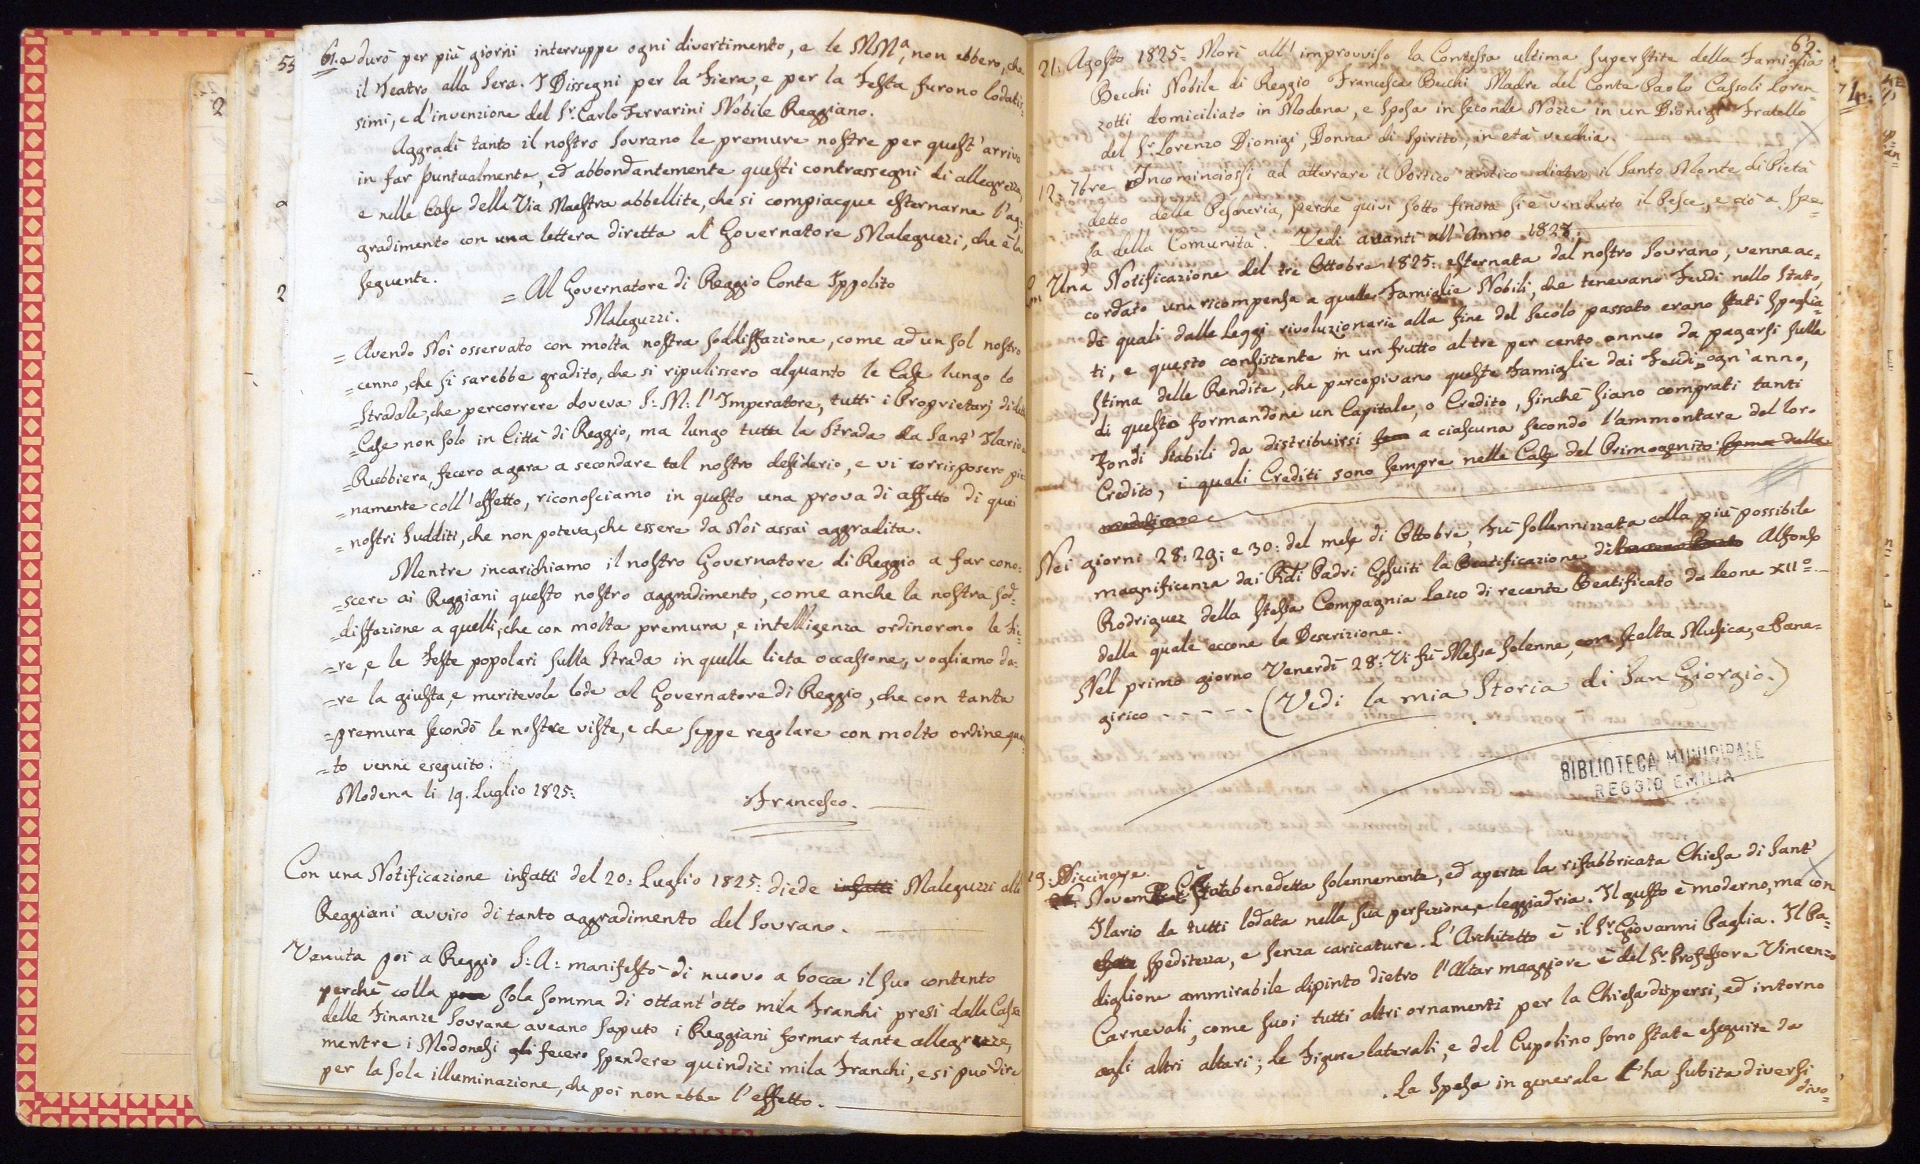 61. e durò per più giorni interruppe ogni divertimento, e le MMª, non ebbero, che
il Teatro alla Sera. I Dissegni per la Fiera, e per la Festa furono lodatis=
simi, e d'invenzione del Sr. Carlo Ferrarini Nobile Reggiano.
Aggradì tanto il nostro Sovrano le premure nostre per quest'arrivo
in far puntualmente, ed abbondantemente questi contrassegni di allegrezza,
e nelle Case della Via Maestra abbellite, che si compiacque esternarne l'ag=
gradimento con una lettera diretta al Governatore Maleguzzi, che è la
seguente.
= Al Governatore di Reggio Conte Ippolito
Maleguzzi.
= Avendo Noi osservato con molta nostra soddisfazione, come ad un sol nostro
= cenno, che si sarebbe gradito, che si ripulissero alquanto le Case lungo lo
= Stradale, che percorrere doveva S: M: l'Imperatore, tutti i Proprietarj di dette
= Case non solo in Città di Reggio, ma lungo tutta la Strada da Sant' Ilario a
= Rubbiera, fecero a gara a secondare tal nostro desiderio, e vi corrisposero pie
= namente coll'effetto, riconosciamo in questo una prova di affetto di quei
= nostri Sudditi, che non poteva, che essere da Noi assai aggradita.
Mentre incarichiamo il nostro Governatore di Reggio a far cono=
= scere ai Reggiani questo nostro aggradimento, come anche la nostra sod=
= disfazione a quelli, che con molta premura, e intelligenza ordinorono le Fie=
= re, e le Feste popolari sulla Strada in quella lieta occasione, vogliamo da=
= re la giusta, e meritevole lode al Governatore di Reggio, che con tanta
= premura secondò le nostre viste, e che seppe regolare con molto ordine quan=
= to venne eseguito.
Modena li 19. Luglio 1825:
Francesco.
Con una Notificazione infatti del 20: Luglio 1825: diede infatti Maleguzzi alli
Reggiani avviso di tanto aggradimento del Sovrano.
Venuta poi a Reggio S: A: manifestò di nuovo a bocca il suo contento
perchè colla sola somma di ottant'otto mila Franchi presi dalla Cassa
delle Finanze Sovrane aveano saputo i Reggiani formar tante allegrezze,
mentre i Modonesi gli fecero spendere quindici mila Franchi, e si può dire
per la sola illuminazione, che poi non ebbe l'effetto.
62.
21: Agosto 1825: Morì all'improvviso la Contessa ultima superstite della Famiglia
Becchi Nobile di Reggio Francesca Becchi Madre del Conte Paolo Cassoli Loren=
zotti domiciliato in Modena, e sposa in seconde Nozze in un Dionigi Fratello
del Sr. Lorenzo Dionigi, Donna di spirito, in età vecchia.
12: 7bre Incominciossi ad atterrare il Portico antico dietro il Santo Monte di Pietà
detto della Pescheria, perchè quivi sotto finora si è venduto il Pesce, e ciò a spe=
sa della Comunità. Vedi avanti all'Anno 1828.
Una Notificazione del tre Ottobre 1825: esternata dal nostro Sovrano, venne ac=
cordato una ricompensa a quelle Famiglie Nobili, che tenevano Feudi nello Stato,
de quali dalle leggi rivoluzionarie alla fine del secolo passato erano stati spoglia=
ti, e questo consistente in un frutto al tre per cento annuo da pagarsi sulla
stima delle Rendite, che percepivano queste Famiglie dai Feudi, ogn'anno,
di questo formandone un Capitale, o Credito, finchè siano comprati tanti
Fondi stabili da distribuirsi a ciascuna secondo l'ammontare del loro
Credito, i quali Crediti sono sempre nelle Case del Primogenito
Nei giorni 28: 29: e 30: del mese di Ottobre, fù sollennizzata colla più possibile
magnificenza dai Rdi Padri Gesuiti la Beatificazione di Alfonso
Rodriguez della stessa Compagnia laico di recente Beatificato da Leone XIIº.
della quale eccone la Descrizione.
Nel primo giorno Venerdì 28: Vi fù Messa solenne, con scelta Musica, e Pane=
girico - - - - - (Vedi la mia Storia di San Giorgio.)
BIBLIOTECA MUNICIPALE
REGGIO EMILIA
19: Diccinove.
Novembre Fù benedetta solennemente, ed aperta la rifabbricata Chiesa di Sant'
Ilario da tutti lodata nella sua perfezione, e leggiadria. Il gusto è moderno, ma con
speditezza, e senza caricature. L'Architetto è il Sr. Giovanni Paglia. Il Pa=
diglione ammirabile dipinto dietro l'Altar maggiore è del Sr. Professore Vincenzo
Carnevali, come suoi tutti altri ornamenti per la Chiesa dispersi, ed intorno
agli altri altari; le Figure laterali, e del Cupolino sono state eseguite da
. La spesa in generale l'ha subita diversi
divo=